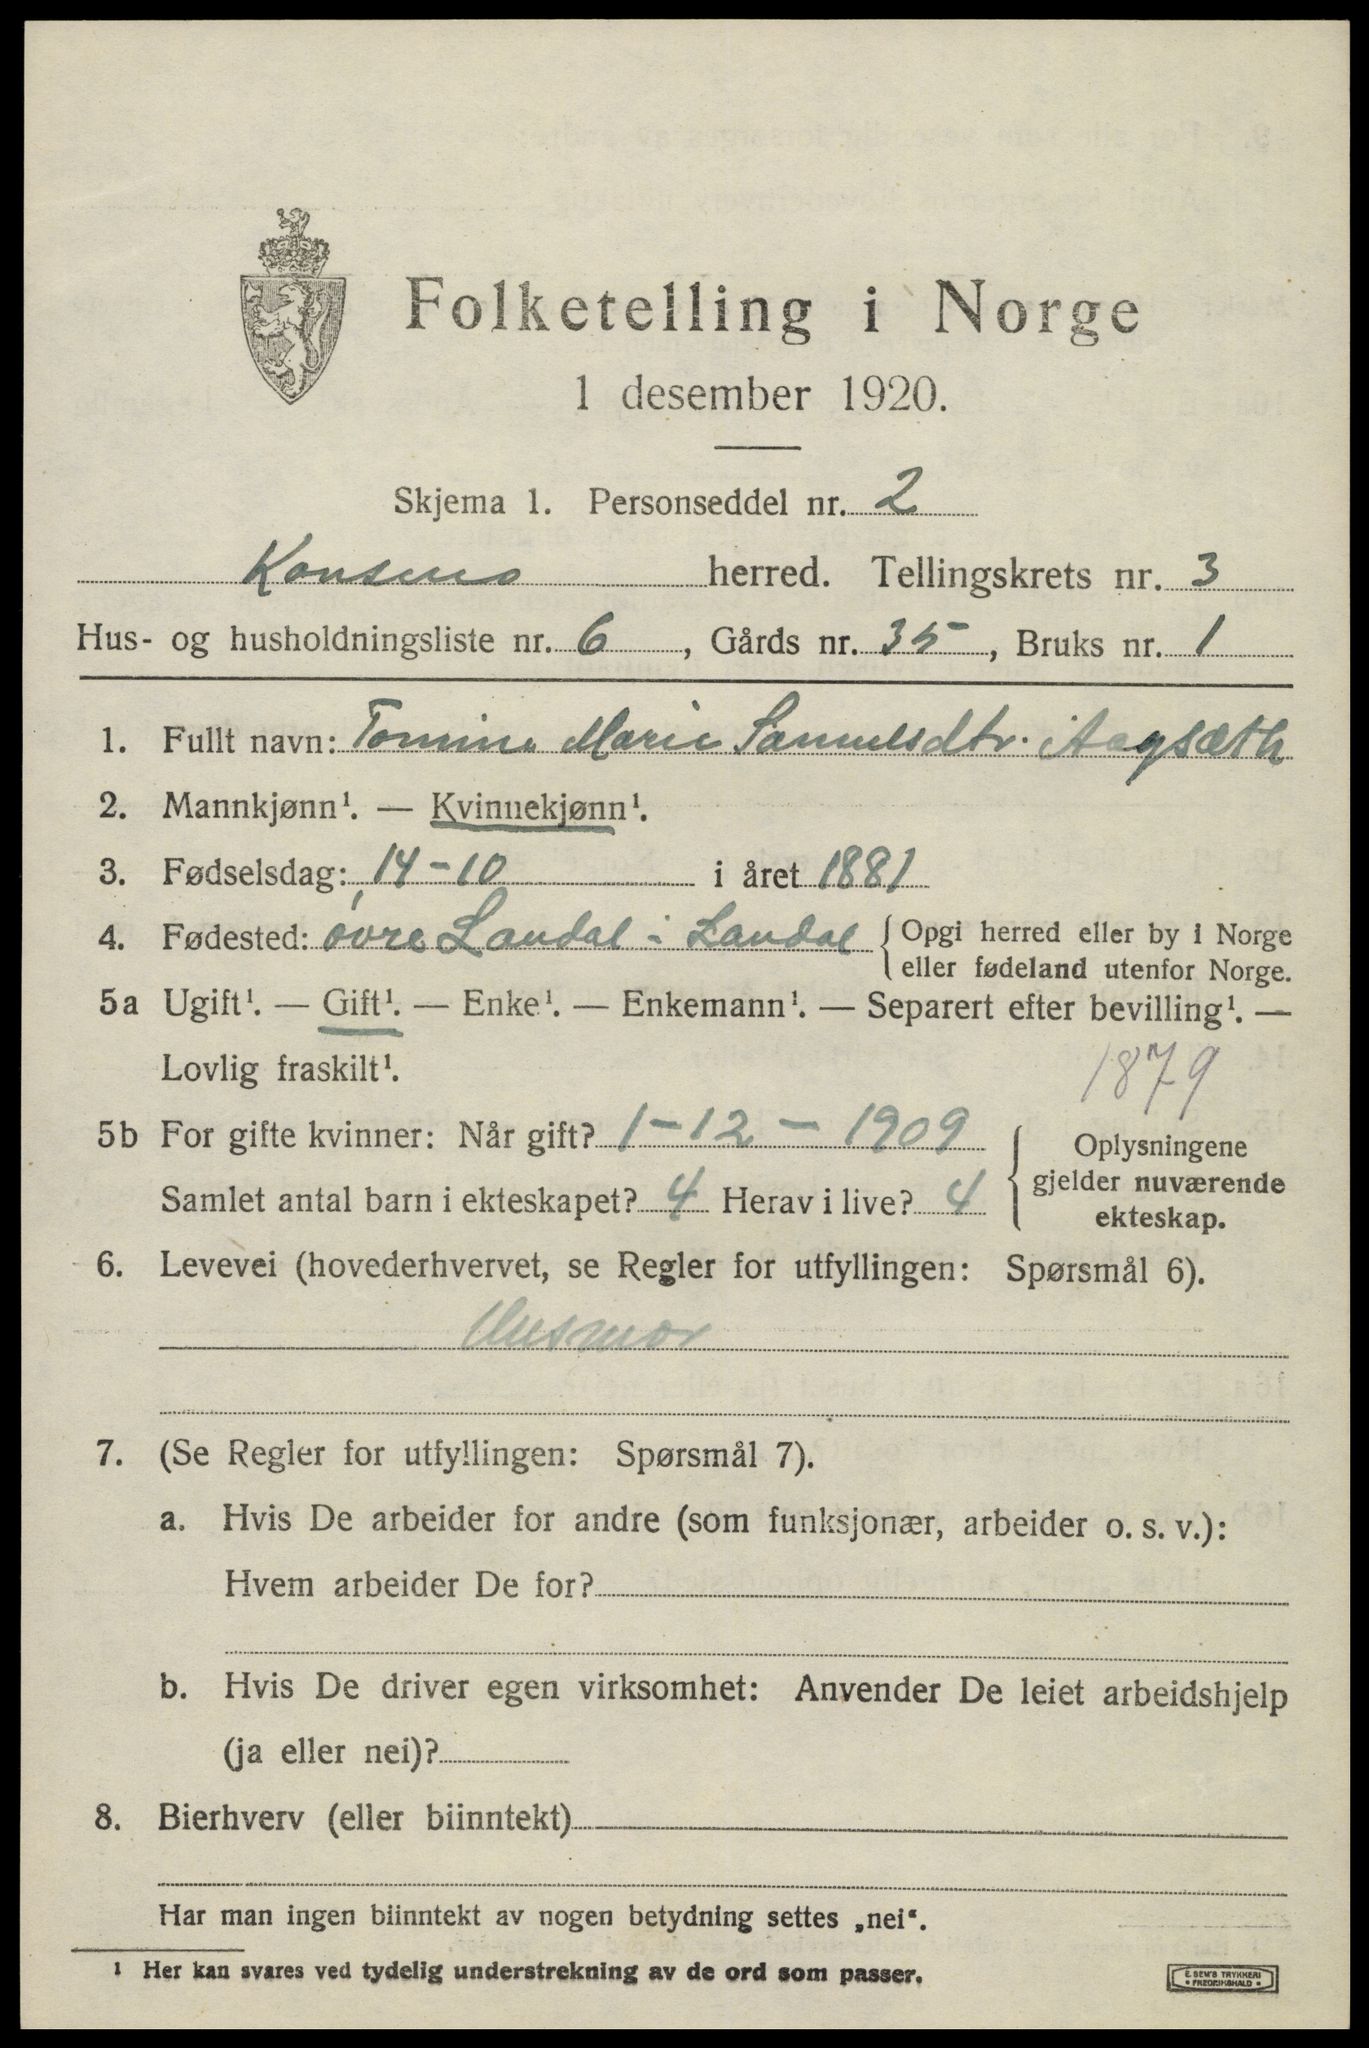 Folketelling i Norge
1 desember 1920.
Skjema 1. Personseddel nr. 2
Konsmo herred. Tellingskrets nr. 3
Hus- og husholdningsliste nr. 6, Gårds nr. 35, Bruks nr. 1
1. Fullt navn: Tomine Marie Samuelsdtr. Aagsæth
2. Mannkjønn¹. — Kvinnekjønn¹.
3. Fødselsdag: 14-10 i året 1881
4. Fødested: øvre Laudal i Laudal { Opgi herred eller by i Norge
eller fødeland utenfor Norge.
5a Ugift¹. — Gift¹. — Enke¹. — Enkemann¹. — Separert efter bevilling¹. —
Lovlig fraskilt¹. 1879
5b For gifte kvinner: Når gift? 1-12-1909
Samlet antal barn i ekteskapet? 4 Herav i live? 4
{ Oplysningene
gjelder nuværende
ekteskap.
6. Levevei (hovederhvervet, se Regler for utfyllingen: Spørsmål 6).
Husmor
7. (Se Regler for utfyllingen: Spørsmål 7).
a. Hvis De arbeider for andre (som funksjonær, arbeider o. s. v.):
Hvem arbeider De for?
b. Hvis De driver egen virksomhet: Anvender De leiet arbeidshjelp
(ja eller nei)?
8. Bierhverv (eller biinntekt)
Har man ingen biinntekt av nogen betydning settes „nei“.
¹ Her kan svares ved tydelig understrekning av de ord som passer.
E. SEM'S TRYKKERI
• FREDRIKSHALD •